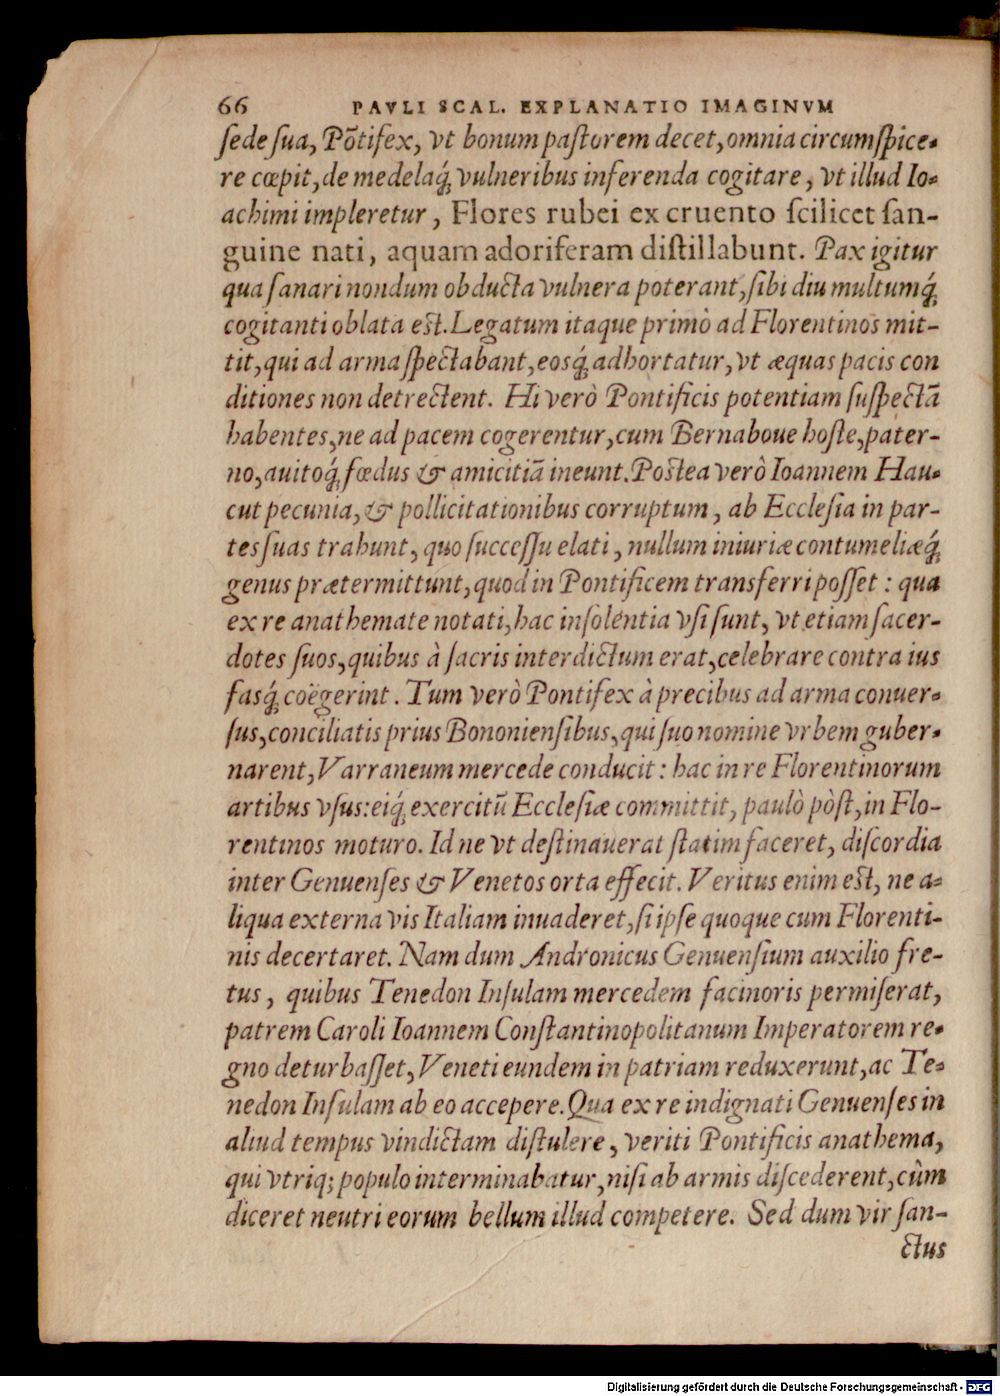 66 PAVLI SCAL. EXPLANATIO IMAGINVM
ſede ſua, Põtifex, vt bonum paſtorem decet, omnia circumſpice-
re cœpit, de medelaq́; vulneribus inferenda cogitare, vt illud Io-
achimi impleretur, Flores rubei ex cruento ſcilicet ſan-
guine nati, aquam adoriferam diſtillabunt. Pax igitur
qua ſanari nondum obducta vulnera poterant, ſibi diu multumq́;
cogitanti oblata est. Legatum itaque primò ad Florentinos mit-
tit, qui ad arma ſpectabant, eosq́; adhortatur, vt æquas pacis con
ditiones non detrectent. Hi verò Pontificis potentiam ſuſpectã
habentes, ne ad pacem cogerentur, cum Bernaboue hoſte, pater-
no, auitoq́; fœdus & amicitiã ineunt. Postea verò Ioannem Hau-
cut pecunia, & pollicitationibus corruptum, ab Eccleſia in par-
tes ſuas trahunt, quo ſucceſſu elati, nullum iniuriæ contumeliæq́;
genus prætermittunt, quod in Pontificem transferri poſſet: qua
ex re anathemate notati, hac inſolentia vſi ſunt, vt etiam ſacer-
dotes ſuos, quibus à ſacris interdictum erat, celebrare contra ius
fasq́; coëgerint. Tum verò Pontifex à precibus ad arma conuer-
ſus, conciliatis prius Bononienſibus, qui ſuo nomine vrbem guber-
narent, Varraneum mercede conducit: hac in re Florentinorum
artibus vſus: eiq́; exercitũ Eccleſiæ committit, paulò pòſt, in Flo-
rentinos moturo. Id ne vt deſtinauerat ſtatim faceret, diſcordia
inter Genuenſes & Venetos orta effecit. Veritus enim est, ne a-
liqua externa vis Italiam inuaderet, ſi ipſe quoque cum Florenti-
nis decertaret. Nam dum Andronicus Genuenſium auxilio fre-
tus, quibus Tenedon Inſulam mercedem facinoris permiſerat,
patrem Caroli Ioannem Conſtantinopolitanum Imperatorem re-
gno deturbaſſet, Veneti eundem in patriam reduxerunt, ac Te-
nedon Inſulam ab eo accepere. Qua ex re indignati Genuenſes in
aliud tempus vindictam diſtulere, veriti Pontificis anathema,
qui vtriq; populo interminabatur, niſi ab armis diſcederent, cùm
diceret neutri eorum bellum illud competere. Sed dum vir ſan-
ctus
Digitalisierung gefördert durch die Deutsche Forschungsgemeinschaft - DFG